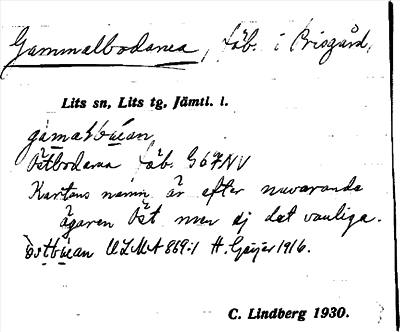 Gammalbodarna, fäb. i Prisgård,
Lits sn, Lits tg, Jämtl. l.
Östbodarna fäb. G 67 NV
Kartans namn är efter nuvarande
ägaren Öst men ej det vanliga.
ULMA 869:1 H. Geijer 1916.
C. Lindberg 1930.